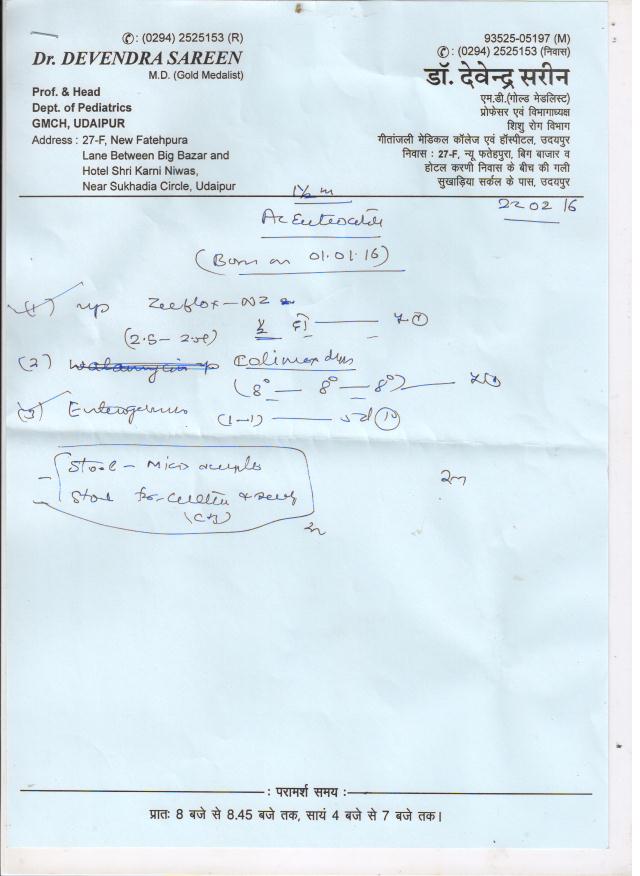 ✆: (0294) 2525153 (R)
Dr. DEVENDRA SAREEN
M.D. (Gold Medalist)
Prof. & Head
Dept. of Pediatrics
GMCH, UDAIPUR
Address : 27-F, New Fatehpura
Lane Between Big Bazar and
Hotel Shri Karni Niwas,
Near Sukhadia Circle, Udaipur
93525-05197 (M)
✆: (0294) 2525153 (निवास)
डॉ. देवेन्द्र सरीन
एम.डी.(गोल्ड मेडलिस्ट)
प्रोफेसर एवं विभागाध्यक्ष
शिशु रोग विभाग
गीतांजली मेडिकल कॉलेज एवं हॉस्पीटल, उदयपुर
निवास : 27-F, न्यू फतेहपुरा, बिग बाजार व
होटल करणी निवास के बीच की गली
सुखाड़िया सर्कल के पास, उदयपुर
1½ m
22 02 16
Ac
(Born on 01.01.16)
(1) Zeeflox-NZ
(2.5 -
(2) Colimex
(8° — 8° — 8°)
(3)
(1-1) 10
Stool - Micro
Stool for
: परामर्श समय :
प्रातः 8 बजे से 8.45 बजे तक, सायं 4 बजे से 7 बजे तक।